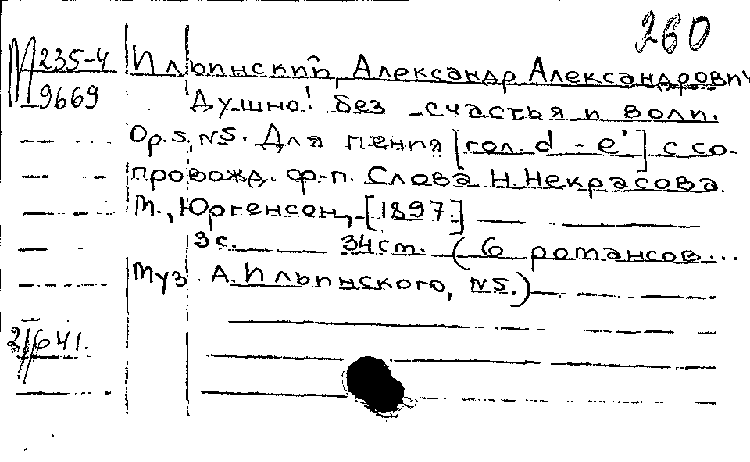 260
М 235-4 Ильинский, Александр Александрович
9669 Душно! Без счастья и воли.
Op. 5, N5. Для пения [гол. d - e'] с со-
провожд. ф-п. Слова Н. Некрасова
М., Юргенсон, [1897]
3 с. 34 ст. (6 романсов...
Муз. А. Ильинского, N5.)
21641.